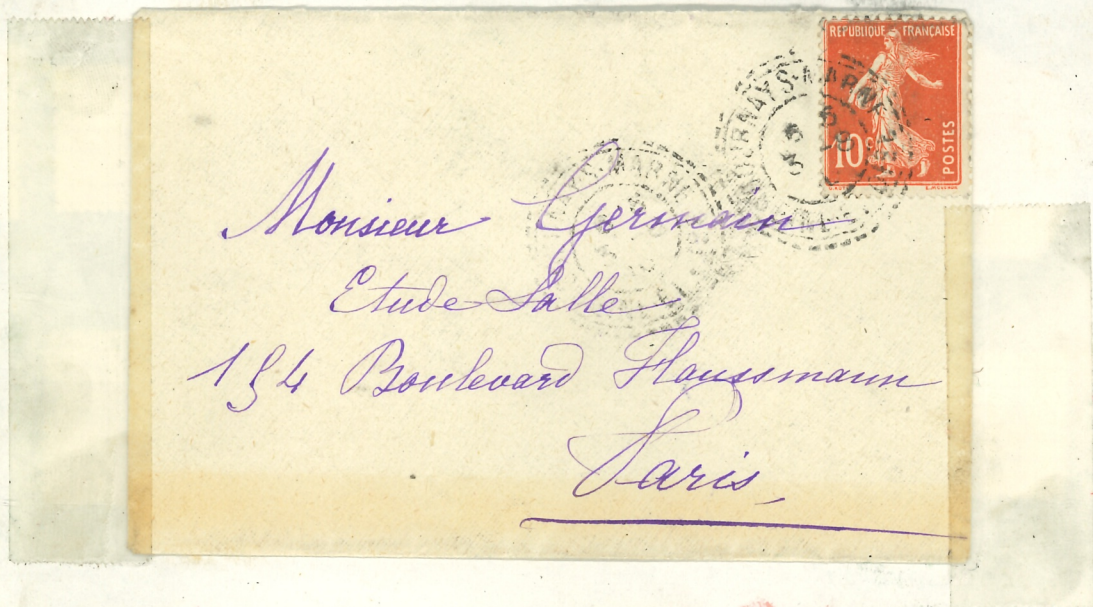 REPUBLIQUE FRANÇAISE
10c
POSTES
Monsieur Germain
Etude Salle
154 Boulevard Haussmann
Paris